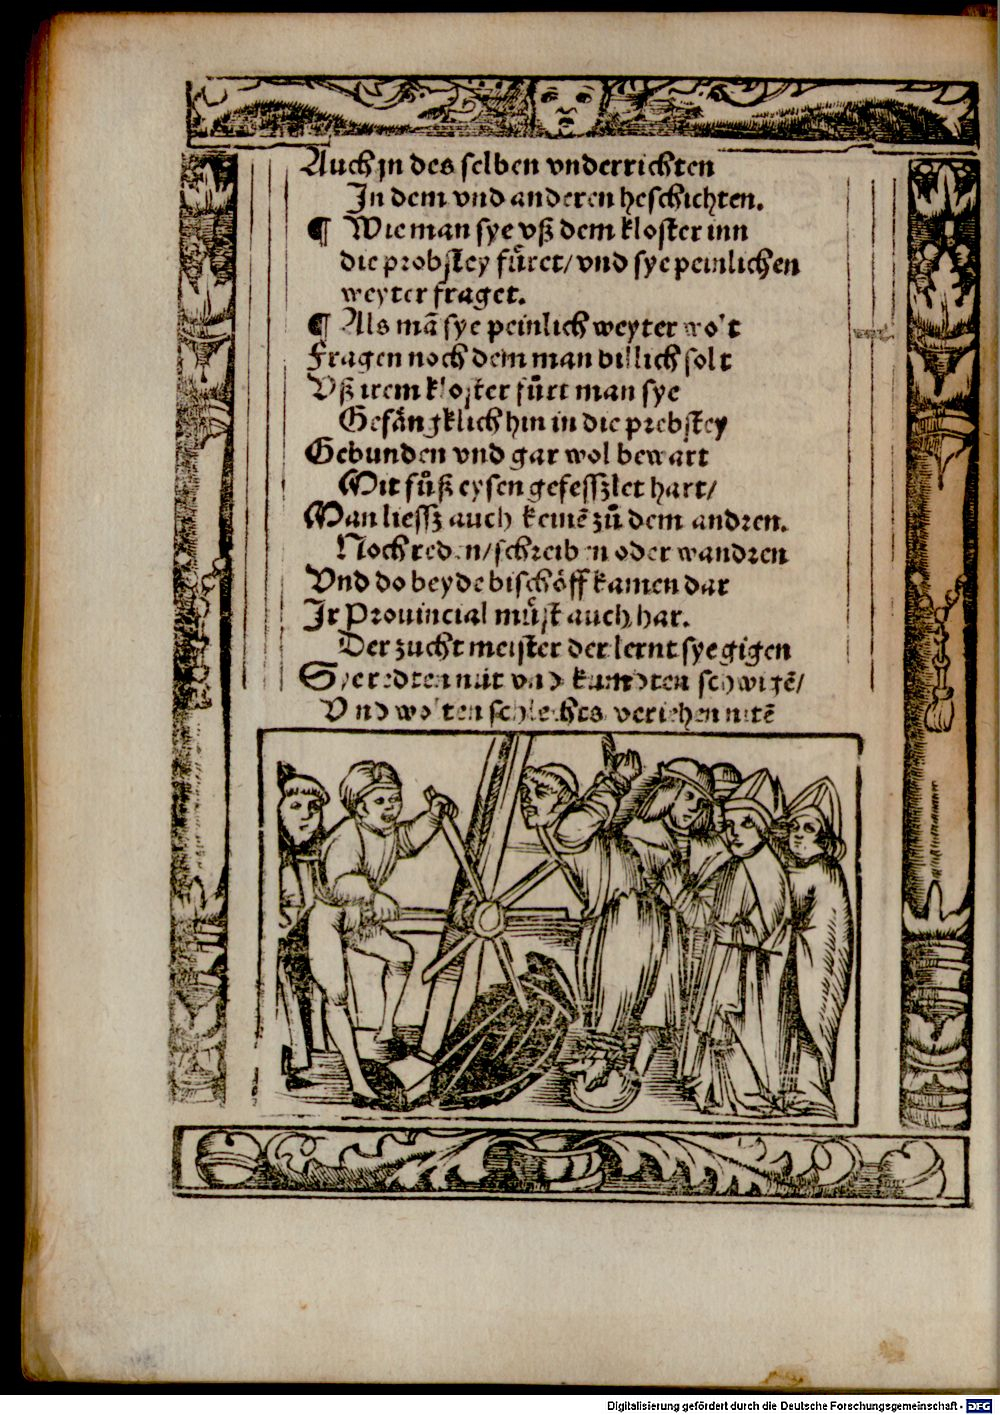 Auch jn des selben vnderrichten
In dem vnd anderen heschichten.
¶ Wie man sye vß dem kloster inn
die probstey fuͤret/ vnd sye peinlichen
weyter fraget.
¶ Als mā sye peinlich weyter wolt
Fragen noch dem man billich solt
Vß irem kloster fuͤrt man sye
Gefaͤngklich hin in die prebstey
Gebunden vnd gar wol bewart
Mit fuͦß eysen gefesszlet hart/
Man liessz auch keinē zuͦ dem andren.
Noch reden/ schreiben oder wandren
Vnd do beyde bischoͤff kamen dar
Ir Prouincial muͤst auch har.
Der zucht meister der lernt sye gigen
Sye redten nüt vnd kundten schwigē/
Vnd wolten schlechts veriehen nitē
Digitalisierung gefördert durch die Deutsche Forschungsgemeinschaft - DFG